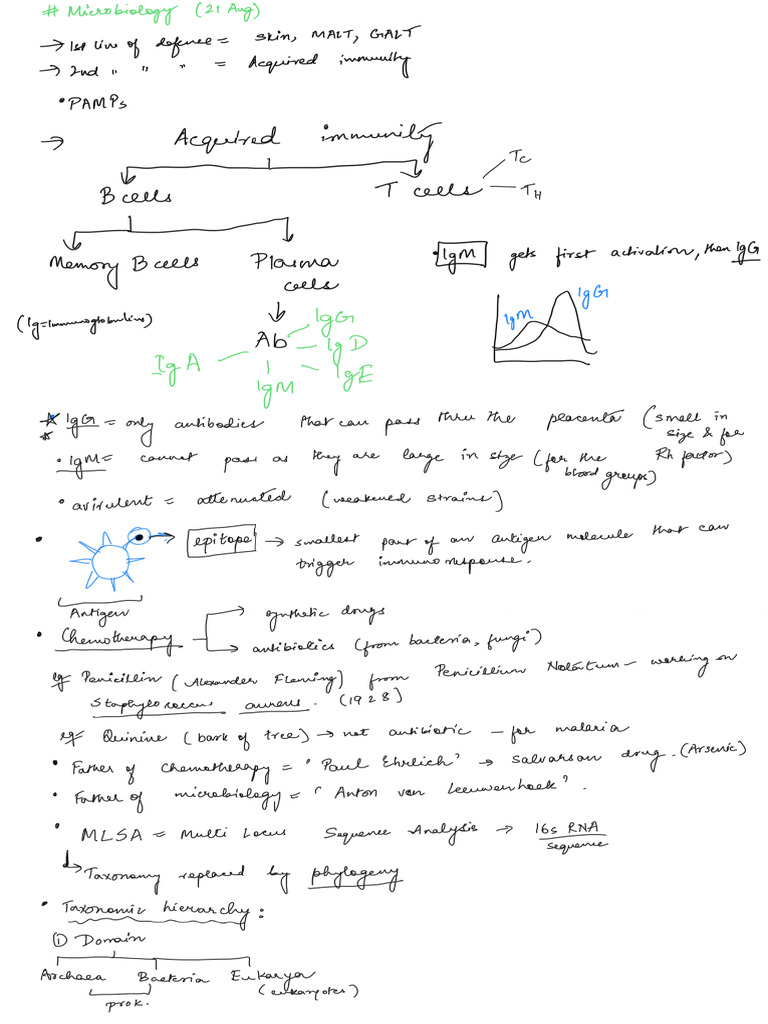 # Microbiology (21 Aug)
→ 1st line of defense = skin, MALT, GALT
→ 2nd " " " = Acquired immunity
• PAMPs
→ Acquired immunity
B cells T cells Tc
TH
Memory B cells Plasma cells
• IgM gets first activation, then IgG
IgM IgG
(Ig=Immunoglobulins)
Ab
IgG
IgA IgD
IgM IgE
* IgG = only antibodies that can pass thru the placenta (small in size & for Rh factor)
• IgM = cannot pass as they are large in size (for the blood groups)
• avirulent = attenuated (weakened strains)
• epitope → smallest part of an antigen molecule that can
trigger immunoresponse.
Antigen
• Chemotherapy → synthetic drugs
→ antibiotics (from bacteria, fungi)
eg Penicillin (Alexander Fleming) from Penicillium Notatum - working on
Staphylococcus aureus. (1928)
eg Quinine (bark of tree) → not antibiotic - for malaria
• Father of chemotherapy = 'Paul Ehrlich' → Salvarsan drug. (Arsenic)
• Father of microbiology = 'Anton van Leeuwenhoek'.
• MLSA = Multi Locus Sequence Analysis → 16s RNA
sequence
↳ Taxonomy replaced by phylogeny
• Taxonomic hierarchy:
① Domain
Archaea Bacteria Eukarya
prok. (eukaryotes)